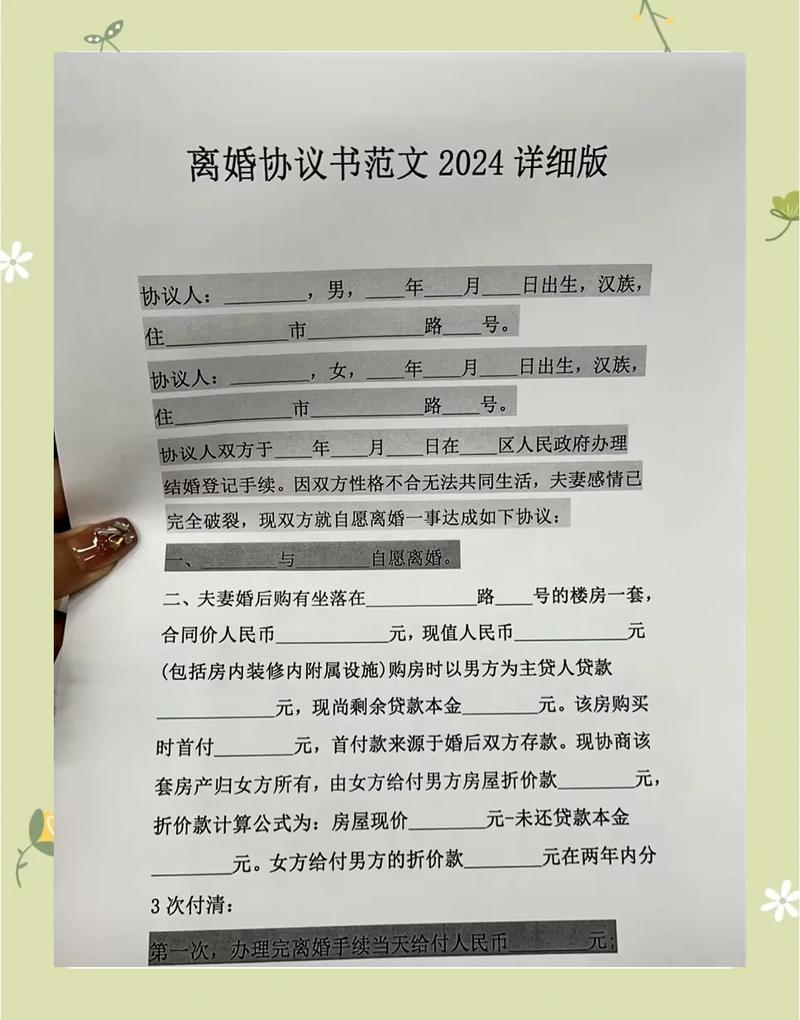 离婚协议书范文2024详细版
协议人：________，男，____年____月____日出生，汉族，
住____________市____________路____号。
协议人：________，女，____年____月____日出生，汉族，
住____________市____________路____号。
协议人双方于____年____月____日在____区人民政府办理
结婚登记手续。因双方性格不合无法共同生活，夫妻感情已
完全破裂，现双方就自愿离婚一事达成如下协议：
一、________与________自愿离婚。
二、夫妻婚后购有坐落在____________路____号的楼房一套，
合同价人民币____________元，现值人民币____________元
(包括房内装修内附属设施)购房时以男方为主贷人贷款
____________元，现尚剩余贷款本金________元。该房购买
时首付________元，首付款来源于婚后双方存款。现协商该
套房产归女方所有，由女方给付男方房屋折价款________元，
折价款计算公式为：房屋现价________元-未还贷款本金
________元。女方给付男方的折价款________元在两年内分
3次付清：
第一次，办理完离婚手续当天给付人民币________元;